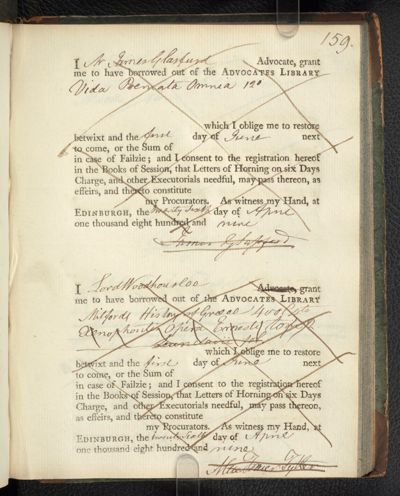 159.
I Mr James Glassford Advocate, grant
me to have borrowed out of the ADVOCATES LIBRARY
Vida Poemata Omnia 12o
which I oblige me to restore
betwixt and the first day of June next
to come, or the Sum of
in case of Failzie; and I consent to the registration hereof
in the Books of Session, that Letters of Horning on six Days
Charge, and other Executorials needful, may pass thereon, as
effeirs, and thereto constitute
my Procurators. As witness my Hand, at
EDINBURGH, the twenty sixth day of April
one thousand eight hundred and nine
James Glassford
I Lord Woodhouselee Advocate, grant
me to have borrowed out of the ADVOCATES LIBRARY
Mitfords History of Greece 4to
Xenophontis Opera Ernesti
which I oblige me to restore
betwixt and the first day of June next
to come, or the Sum of
in case of Failzie; and I consent to the registration hereof
in the Books of Session, that Letters of Horning on six Days
Charge, and other Executorials needful, may pass thereon,
as effeirs, and thereto constitute
my Procurators. As witness my Hand, at
EDINBURGH, the day of April
one thousand eight hundred and nine
Fraser Tytler